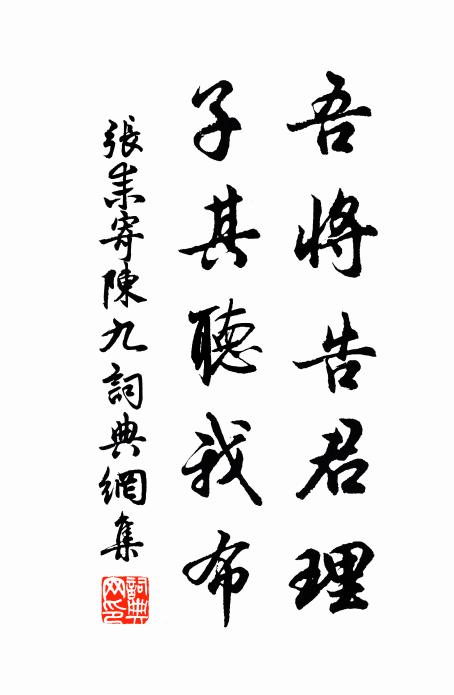 吾將告君理
子其聽我布
張耒寄陳九詞典網集
詞典網印